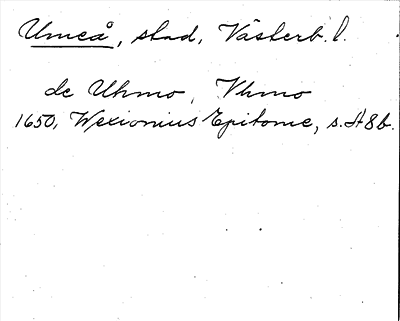 Umeå, stad, Västerb. l.
de Uhmo, Vhmo
1650, Wexionius Epitome, s. A8b.